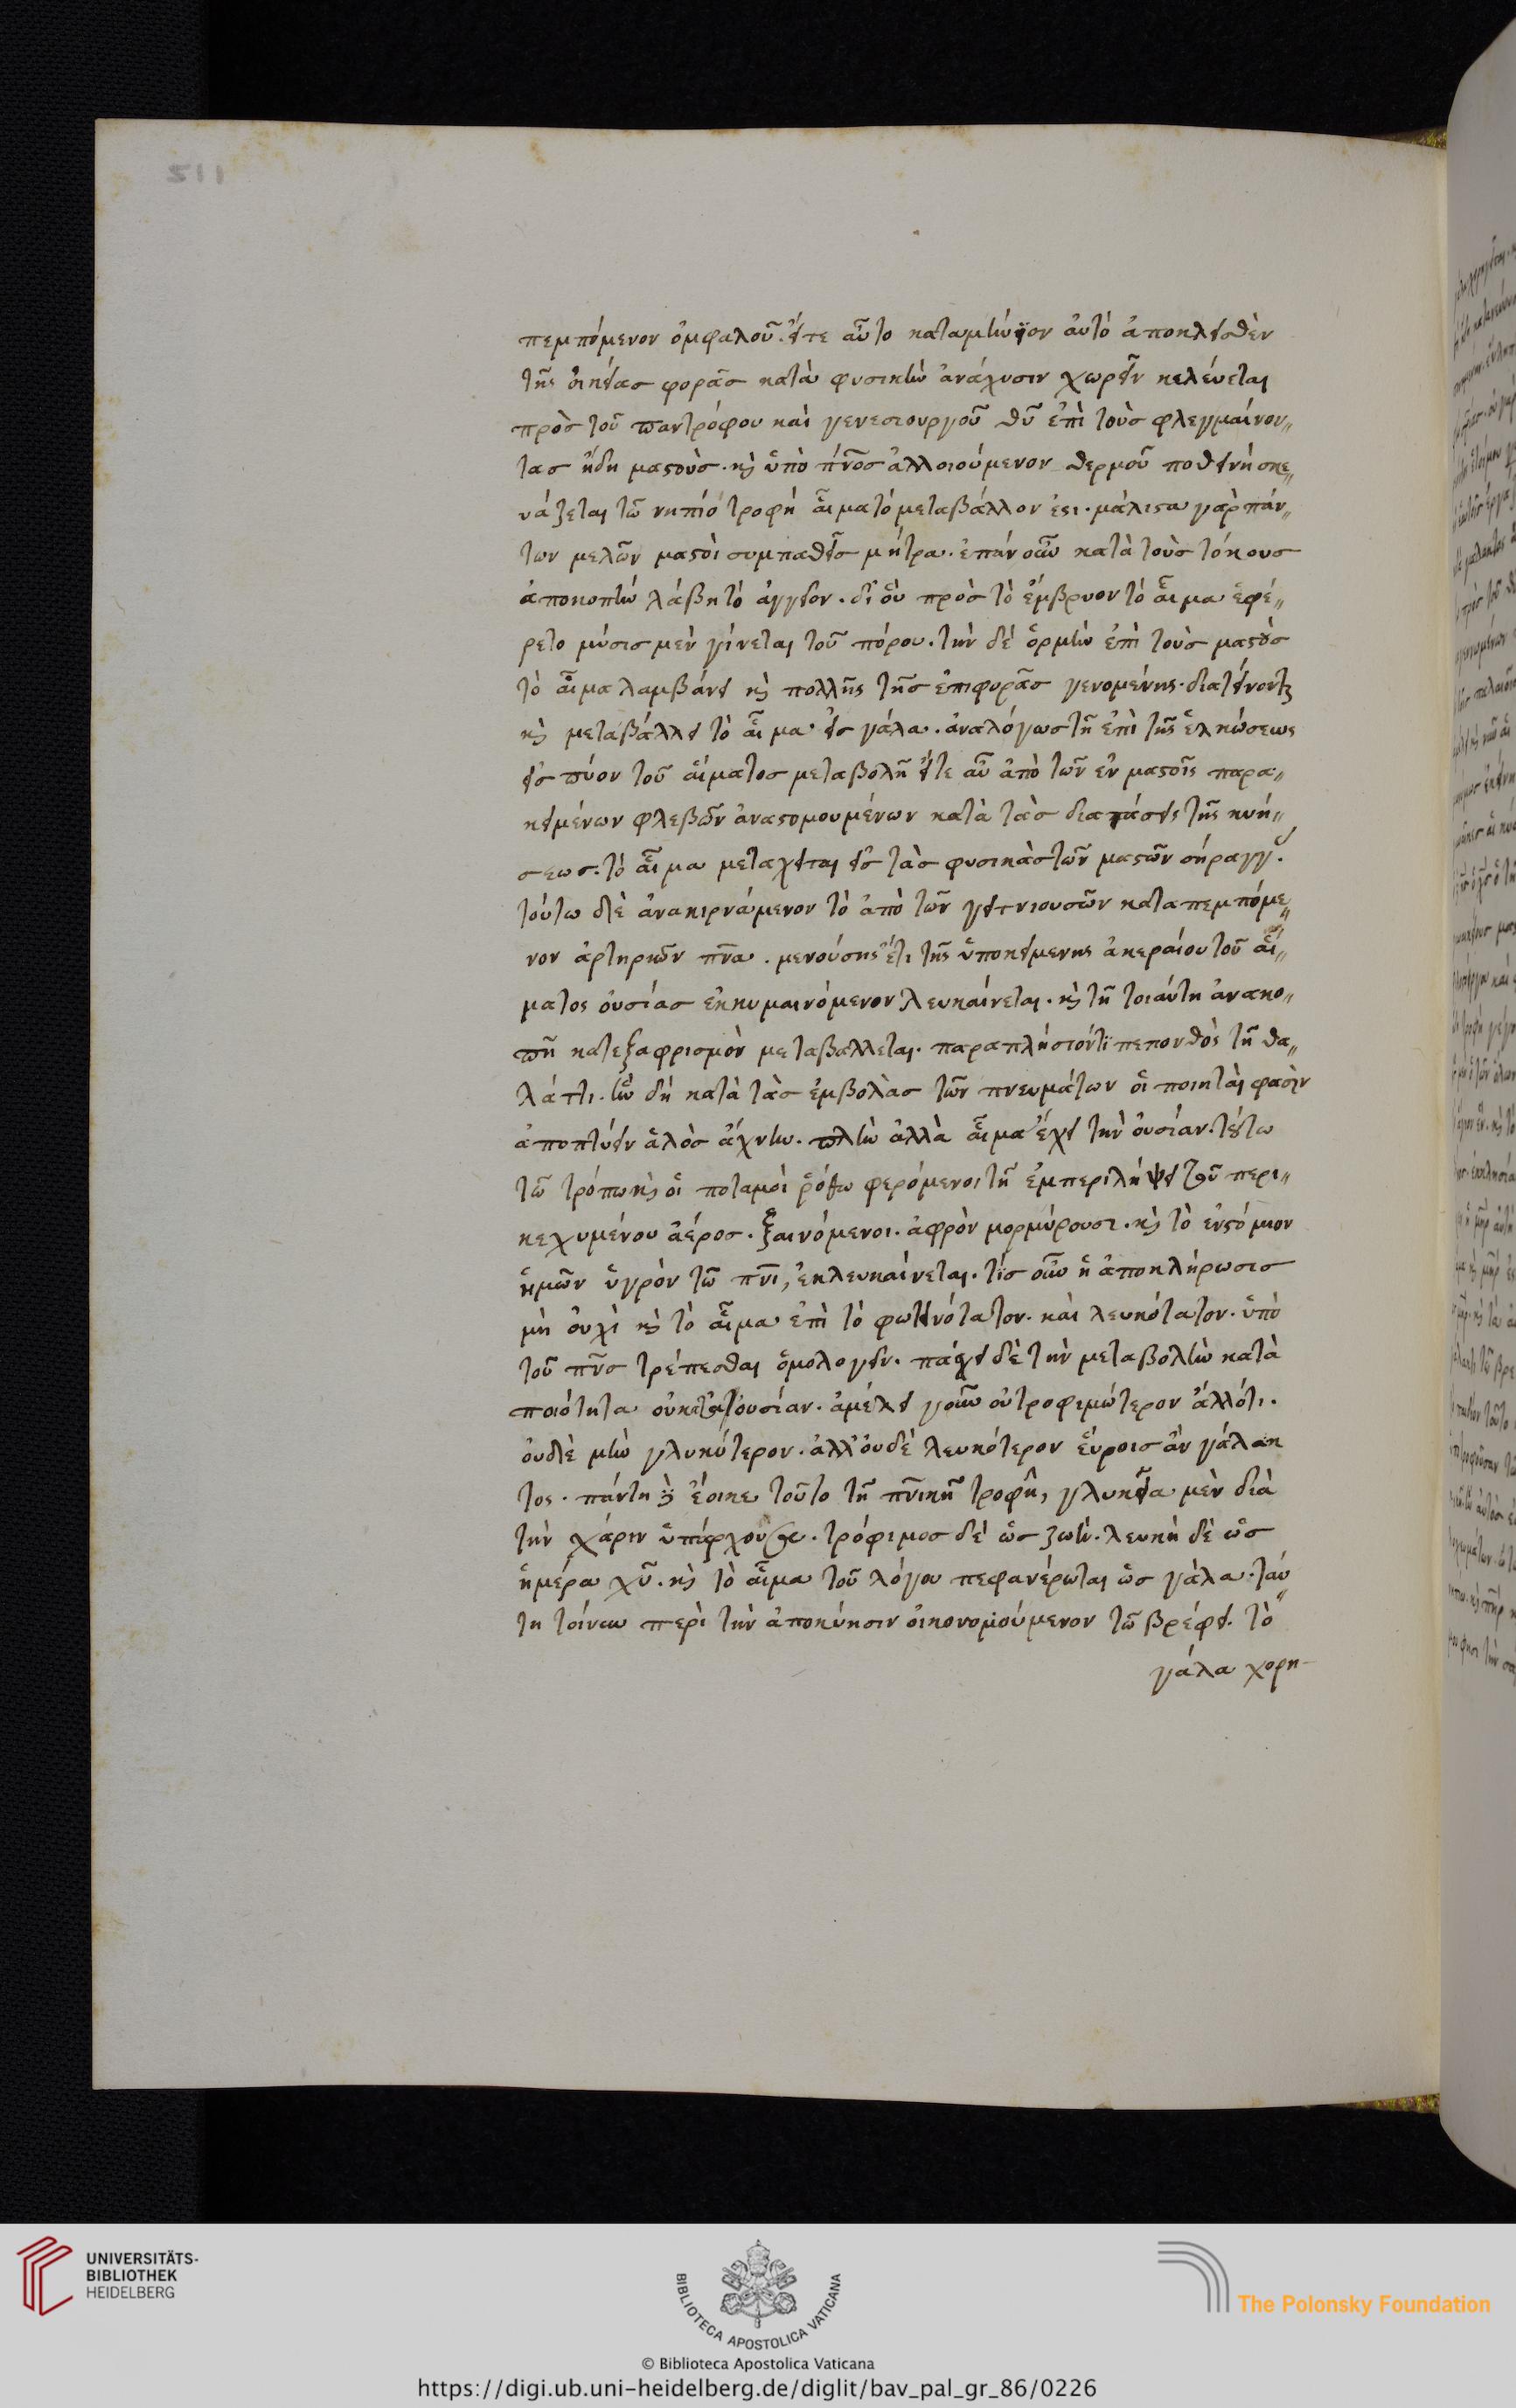 πεμπόμενον ὀμφαλοῦ. εἴτε αὖ το καταμήνιον αὐτὸ ἀποκλεισθὲν
τῆς οἰκείας φορᾶς κατὰ φυσικὴν ἀνάχυσιν χωρεῖν κελεύεται
πρὸς τοῦ παντρόφου καὶ γενεσιουργοῦ θῦ ἐπὶ τοὺς φλεγμαίνον„
τας ἤδη μαστοὺς. κὶ ὑπὸ π̅ν̅ο̅ς ἀλλοιούμενον θερμοῦ ποθεινὴ σκε„
υάζεται τῶ νηπίω τροφή αἷμα τὸ μεταβάλλον ἐστι. μάλιστα γὰρ πάν„
των μελῶν μαστοὶ συμπαθεῖς μήτρα. ἐπὰν οὖν κατὰ τοὺς τόκους
ἀποκοπὴν λάβη τὸ ἀγγεῖον. δι οὗ πρὸς τὸ ἔμβρυον τὸ αἷμα ἐφέ„
ρετο μύσις μὲν γίνεται τοῦ πόρου. τὴν δὲ ὁρμὴν ἐπὶ τοὺς μαστοὺς
τὸ αἷμα λαμβάνει κὶ πολλῆς τῆς ἐπιφορᾶς γενομένης. διατείνονται
κὶ μεταβάλλει τὸ αἷμα εἰς γάλα. ἀναλόγως τῆ ἐπὶ τῆς ἑλκώσεως
εἰς πύον τοῦ αἵματος μεταβολῆ εἴτε αὖ ἀπὸ τῶν ἐν μαστοῖς παρα„
κειμένων φλεβῶν ἀναστομουμένων κατὰ τὰς διατάσεις τῆς κυή„
σεως. τὸ αἷμα μεταχεῖται εἰς τὰς φυσικὰς τῶν μαστῶν σήραγγ.
τούτω δὲ ἀνακιρνάμενον τὸ ἀπὸ τῶν γειτνιουσῶν καταπεμπόμε„
νον ἀρτηριῶν π̅ν̅α. μενούσης ἔτι τῆς ὑποκειμένης ἀκεραίου τοῦ αἵ„
ματος οὐσίας ἐκκυμαινόμενον λευκαίνεται. κὶ τῆ τοιαύτη ἀνακο„
πῆ κατεξαφρισμὸν μεταβάλλεται. παραπλήσιόν τι πεπονθὸς τῆ θα„
λάττι. ἣν δὴ κατὰ τὰς ἐμβολὰς τῶν πνευμάτων οἱ ποιηταὶ φασὶν
ἀποπτύειν ἁλὸς ἄχνην. πλὴν ἀλλὰ αἷμα ἔχει τὴν οὐσίαν. τούτω
τῶ τρόπω κὶ οἱ ποταμοὶ ῥόθω φερόμενοι τῆ ἐμπεριλήψει τοῦ περι„
κεχυμένου ἀέρος. ξαινόμενοι. ἀφρὸν μορμύρουσι. κὶ τὸ ἐνστόμιον
ἡμῶν ὑγρὸν τῶ π̅ν̅ι, ἐκλευκαίνεται. τίς οὖν ἡ ἀποκλήρωσις
μὴ οὐχὶ κὶ τὸ αἷμα ἐπὶ τὸ φωτεινότατον. καὶ λευκότατον. ὑπὸ
τοῦ π̅ν̅ς τρέπεσθαι ὁμολογεῖν. πάσχει δὲ τὴν μεταβολὴν κατὰ
ποιότητα οὐ κατ οὐσίαν. ἀμέλει γοῦν οὐ τροφιμώτερον ἄλλό τι.
οὐδὲ μὴν γλυκύτερον. ἀλλ οὐδὲ λευκότερον εὕροις ἂν γάλακ
τος. πάντη δὲ ἔοικε τοῦτο τῆ π̅ν̅ικῆ τροφῆ, γλυκεῖα μὲν διὰ
τὴν χάριν ὑπάρχουσα. τρόφιμος δὲ ὡς ζωή. λευκὴ δὲ ὡς
ἡμέρα χῦ. κὶ τὸ αἷμα τοῦ λόγου πεφανέρωται ὡς γάλα. ταύ
τη τοίνυν περὶ τὴν ἀποκύησιν οἰκονομούμενον τῶ βρέφει. τὸ
γάλα χορη-
UNIVERSITÄTS-
BIBLIOTHEK
HEIDELBERG
BIBLIOTECA APOSTOLICA VATICANA
The Polonsky Foundation
© Biblioteca Apostolica Vaticana
https://digi.ub.uni-heidelberg.de/diglit/bav_pal_gr_86/0226